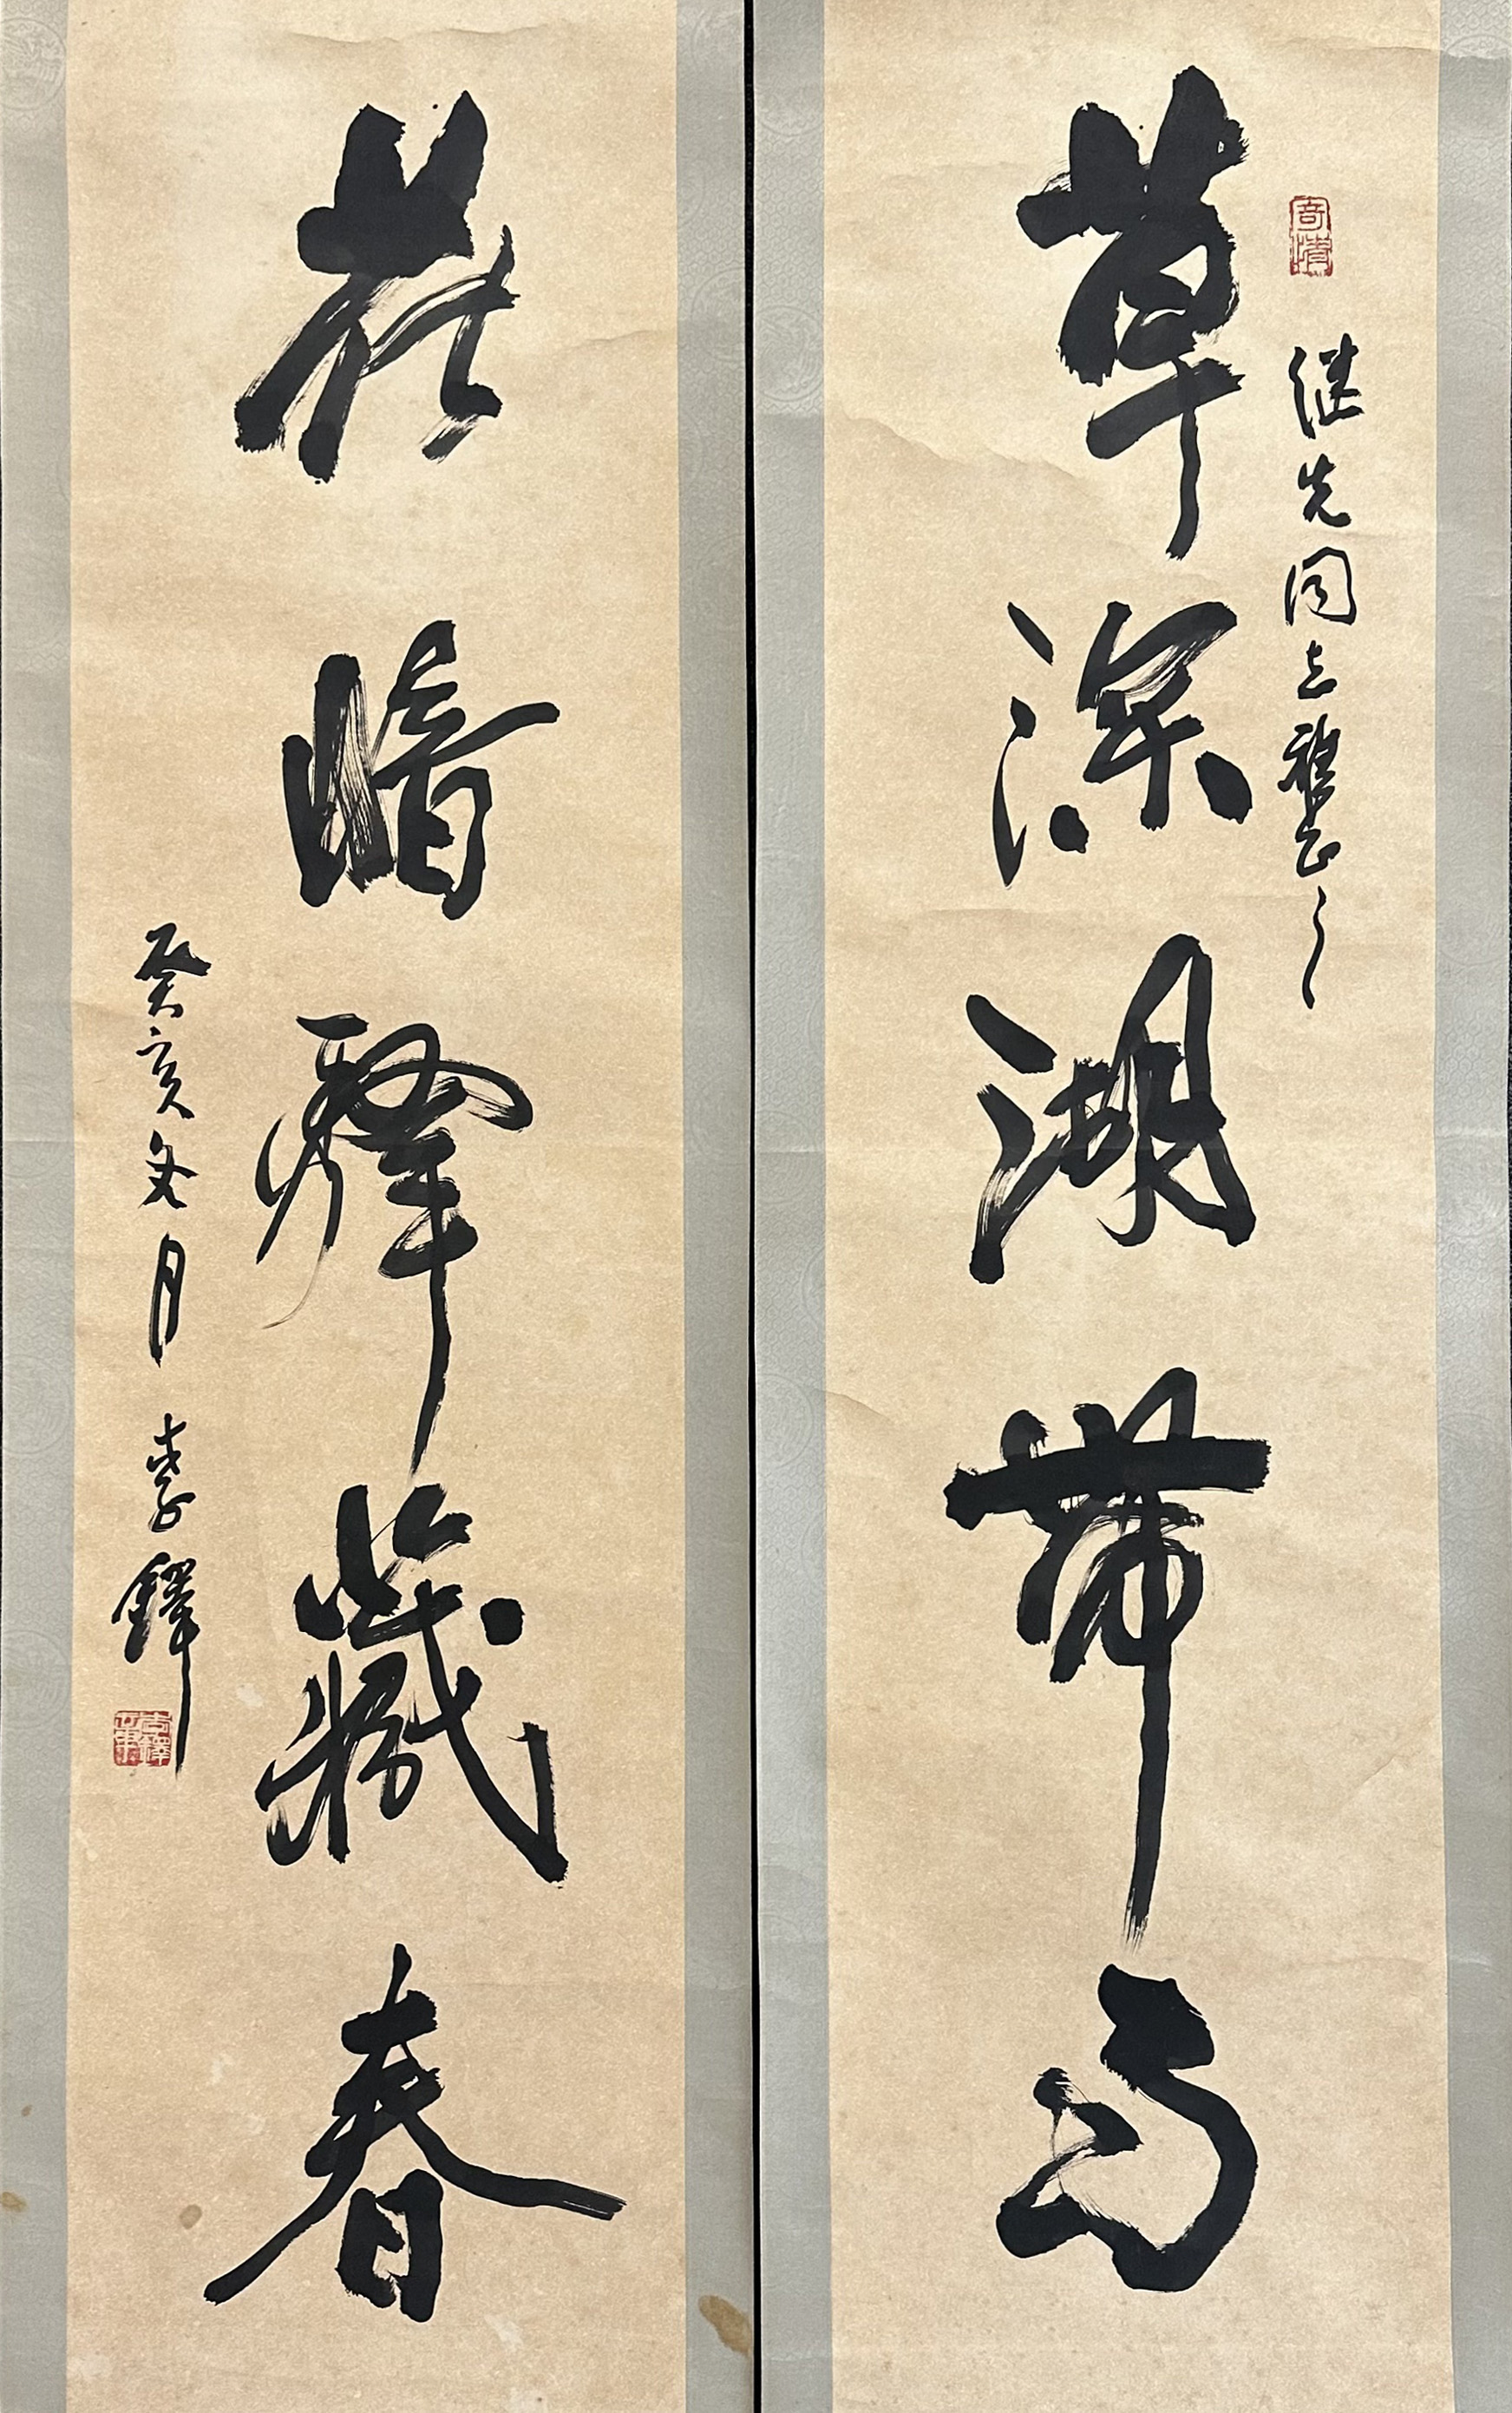 继先同志雅正之
草深湖帶雨
花暗驛藏春
癸亥冬月李鐸